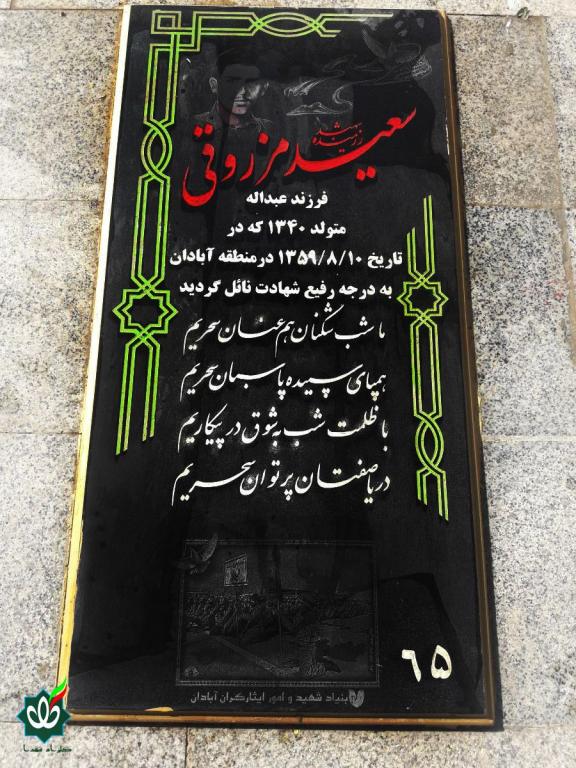 رزمنده شهید
سعید مرزوقی
فرزند عبداله
متولد ۱۳۴۰ که در
تاریخ ۱۳۵۹/۸/۱۰ در منطقه آبادان
به درجه رفیع شهادت نائل گردید
ما شب شکنان هم عنان سحریم
همپای سپیده پاسبان سحریم
با ظلمت شب به شوق در پیکاریم
دریا صفتان پرتوان سحریم
۶۵
بنیاد شهید و امور ایثارگران آبادان
گلزار شهدا